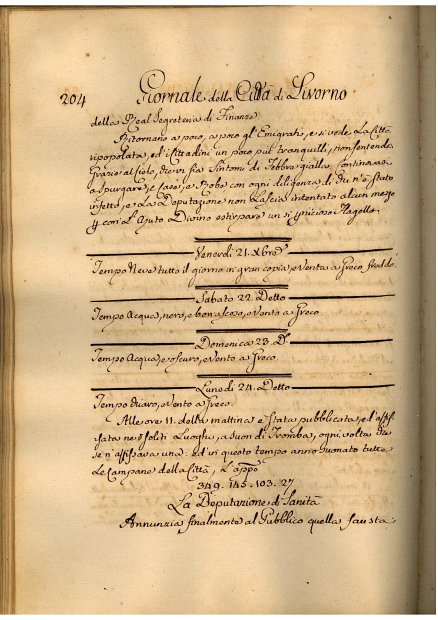 204 Giornale della Città di Livorno
della Real Segreteria di Finanze
Ritornano a poco, a poco gl'Emigrati, e si vede La Città
ripopolata, ed i Cittadini un poco più tranquilli, non sentendo
Grazie al Cielo, che vi sia Sintomi di Febbre gialla. Continovasi
a Spurgare, e Case, e Robe con ogni diligenza di chi n'è stato
infetto, e La Deputazione non Lascia intentato alcun mezzo
con L'Ajuto Divino estirpare un sì pernicioso Flagello.
Venerdì 21. Xbre
Tempo Neve tutto il giorno in gran copia, e Vento a Greco freddo.
Sabato 22. Detto
Tempo Acqua, nero, e burrascoso, e Vento a Greco
Domenica 23. Do
Tempo Acqua, e oscuro, e Vento a Greco.
Lunedì 24. Detto
Tempo chiaro, e Vento a Greco.
Alle ore 11. della mattina è stata pubblicata, ed affis-
sata nei Soliti Luoghi, a suon di Tromba, ogni volta che
se n'affissava una. ed in questo tempo anno suonato tutte
Le Campane della Città, L'appo
349. 145. 103. 27
La Deputazione di Sanità
Annunzia finalmente al Pubblico quella fausta